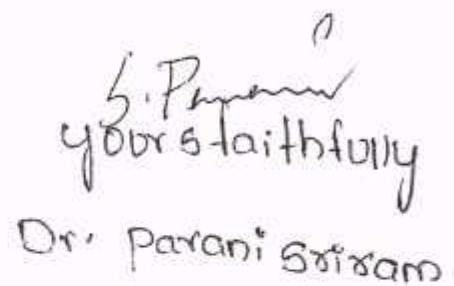 S. Parani
yours faithfully
Dr. Parani Sriram